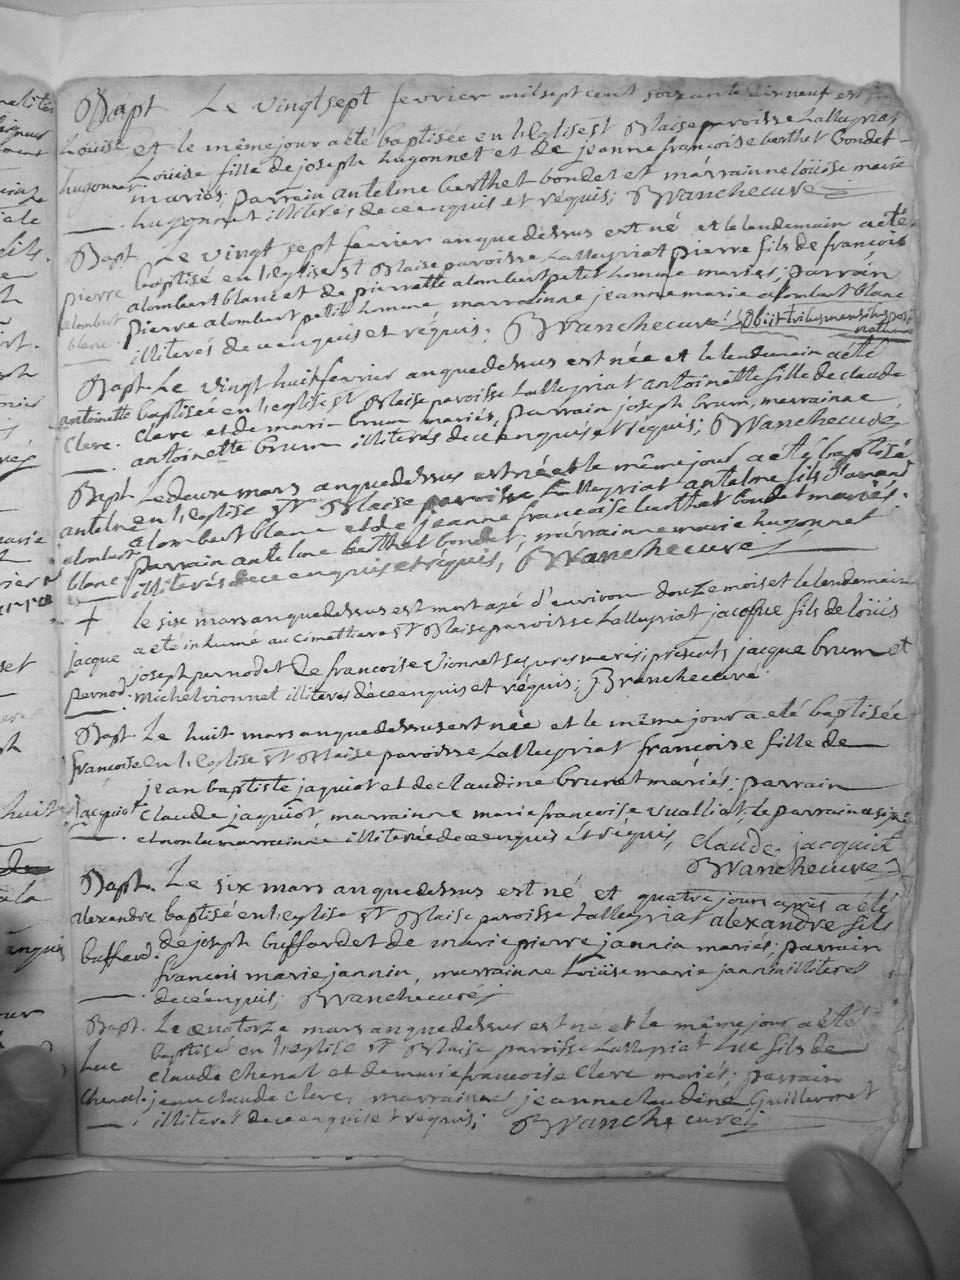 Bapt Le vingt sept fevrier mil sept cent soixante dix neuf est née
Louise et le même jour a eté baptisée en l'Eglise st Blaise paroisse Lalleyriat
hugonnet Loüise fille de joseph hugonnet et de jeanne françoise berthet bondet
mariés; parrain antelme berthet bondet et marrainne loüise marie
hugonnet illiterés de ce enquis et réquis; Branche curé
Bapt Le vingt sept fevrier an que dessus est né et le lendemain a eté
pierre baptisé en l'Eglise st Blaise paroisse Lalleyriat pierre fils de françois
alombert alombert blanc et de pierrette alombert petit homme mariés; parrain
blanc. pierre alombert petit homme marrainne jeanne marie alombert blanc
illiterés de ce enquis et réquis. Branche curé. Obiit tribus mensibus post
natum
Bapt. Le vingt huit fevrier an que dessus est née et le lendemain a eté
antoinette baptisée en l'eglise st Blaise paroisse Lalleyriat antoinette fille de claude
Clerc. Clerc et de marie brun mariés, parrain joseph brun, marrainne
antoinette brun illiterés de ce enquis et réquis; Branche curé
Bapt. Le deux mars an que dessus est né et le même jour a eté baptisé
antelme en l'eglise st Blaise paroisse Lalleyriat antelme fils d'amand
alombert alombert blanc et de jeanne francoise berthet bondet mariés.
blanc parrain antelme berthet bondet; marrainne marie hugonnet
illiterés de ce enquis et réquis; Branche curé
+ le six mars an que dessus est mort agé d'environ douze mois et le lendemain
a eté inhumé au cimettiere st Blaise paroisse Lalleyriat jacque fils de loüis
jacque joseph pernodet de francoise vionnet ses peres meres; présents jacque brun et
pernod. michel vionnet illiterés de ce enquis et réquis; Branche curé.
Bapt. Le huit mars an que dessus est née et le même jour a eté baptisée
françoise en l'Eglise st Blaise paroisse Lalleyriat françoise fille de
jean baptiste jaquiot et de claudine brunet mariés; parrain
jacquiot Claude jaquiot, marrainne marie françoise vualliat, le parrain a signé
et non la marrainne illiterée de ce enquis et réquis, claude. jacquiot
Branche curé
Bapt. Le six mars an que dessus est né et quatre jours après a eté
alexandre baptisé en l'eglise st Blaise paroisse Lalleyriat alexandre fils
buffard. de joseph buffard et de marie pierre jannin mariés; parrain
françois marie jannin, marrainne Loüise marie jannin illiteres
de ce enquis; Branche curé
Bapt. Le quatorze mars an que dessus est né et le même jour a eté
Luc baptisé en l'Eglise st Blaise paroisse Lalleyriat Luc fils de
claude Chenal et de marie francoise clerc mariés; parrain
Chenal. jean claude clerc, marrainne jeanne claudine Guillermet
illiteret de ce enquis et réquis; Branche curé